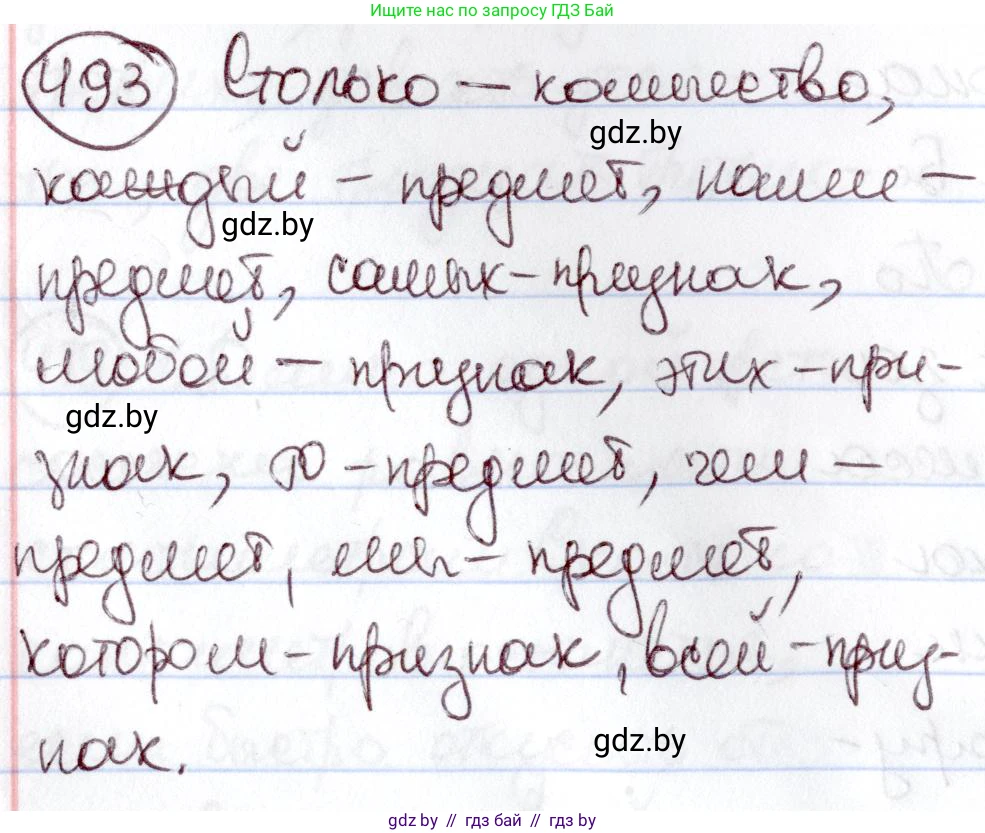 Ищите нас по запросу ГДЗ Бай
493 Столько – количество,
gdz.by
каждый – предмет, нами –
gdz.by
предмет, самых – признак,
любой – признак, этих – при-
gdz.by
знак, то – предмет, чем –
предмет, мы – предмет,
котором – признак, всей – приз-
нак.
gdz.by
gdz.by // гдз бай // gdz.by